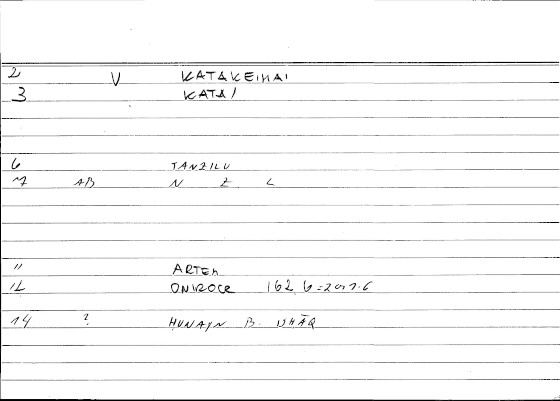 2 V KATAKEIMAI
3 KATA/
6 TANZILU
7 AB N Z L
11 ARTEM
12 ONIROCR 162, 6 = 201.6
14 ? HUNAYN B.